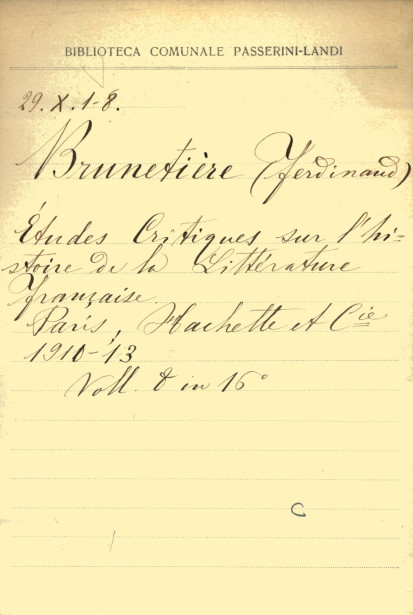 BIBLIOTECA COMUNALE PASSERINI-LANDI
29. X. 1-8.
Brunetière (Ferdinand)
Études Critiques sur l'hi-
stoire de la Littérature
française.
Paris, Hachette et Cie
1910-13
Voll. 8 in 16°
C